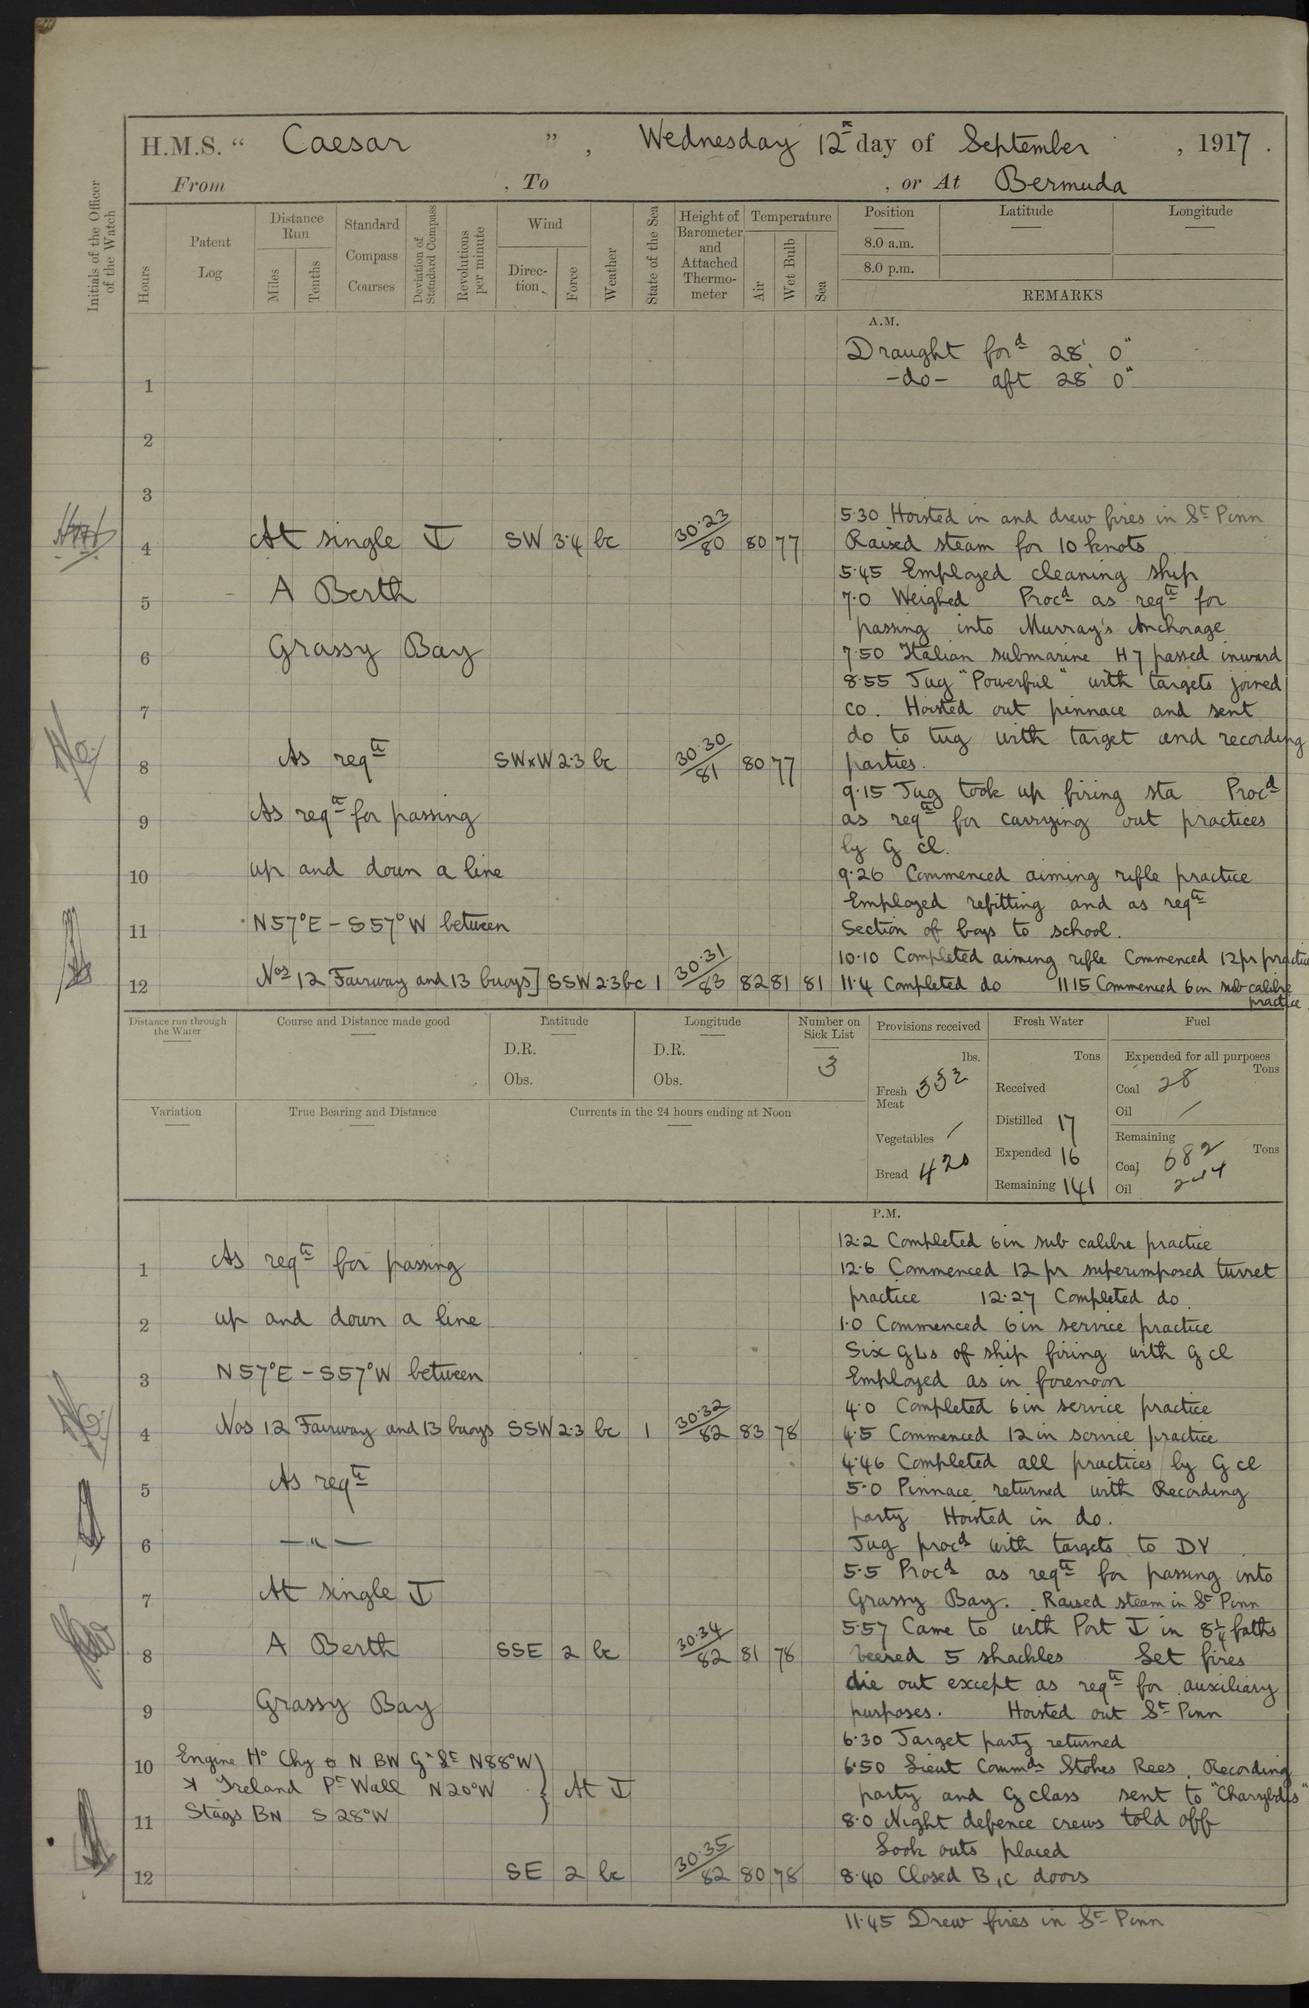 H.M.S. " Caesar ", Wednesday 12th day of September, 1917.
From , To , or At Bermuda
Initials of the Officer of the Watch
Hours
Patent Log
Distance Run
Miles
Tenths
Standard Compass Courses
Deviation of Standard Compass
Revolutions per minute
Wind
Direction
Force
Weather
State of the Sea
Height of Barometer and Attached Thermometer
Temperature
Air
Wet Bulb
Sea
Position
8.0 a.m.
8.0 p.m.
Latitude
Longitude
REMARKS
A.M.
Draught ford 28' 0"
-do- aft 28' 0"
1
2
3
4 At single SW 3·4 bc 30·23/80 80 77
5 A Berth
6 Grassy Bay
7
8 As reqte SWxW 2·3 bc 30·30/81 80 77
9 As reqte for passing
10 up and down a line
11 N57°E - S57°W between
12 Nos 12 Fairway and 13 buoys] SSW 2·3 bc 1 30·31/83 82 81 81
5·30 Hoisted in and drew fires in St Pinn
Raised steam for 10 knots
5·45 Employed cleaning ship
7·0 Weighed Procd as reqte for
passing into Murray's Anchorage
7·50 Italian submarine H7 passed inward
8·55 Tug "Powerful" with targets joined
co. Hoisted out pinnace and sent
do to tug with target and recording
parties.
9·15 Tug took up firing sta Procd
as reqte for carrying out practices
by G cl.
9·26 Commenced aiming rifle practice
Employed refitting and as reqte
Section of boys to school.
10·10 Completed aiming rifle Commenced 12pr practice
11·4 Completed do 11·15 Commenced 6in sub calibre
practice
Distance run through the Water
Course and Distance made good
Latitude
D.R.
Obs.
Longitude
D.R.
Obs.
Number on Sick List
3
Provisions received
lbs.
Fresh Meat 332
Vegetables /
Bread 420
Fresh Water
Tons
Received
Distilled 17
Expended 16
Remaining 141
Fuel
Expended for all purposes
Tons
Coal 28
Oil /
Remaining
Tons
Coal 682
Oil
Variation
True Bearing and Distance
Currents in the 24 hours ending at Noon
P.M.
1 As reqte for passing
2 up and down a line
3 N57°E - S57°W between
4 Nos 12 Fairway and 13 buoys SSW 2·3 bc 1 30·32/82 83 78
5 As reqte
6 — " —
7 At single
8 A Berth SSE 2 bc 30·34/82 81 78
9 Grassy Bay
10 Engine Ho Chy N BW N88°W
Ireland Pt Wall N20°W } At
11 Stags BN S28°W
12 SE 2 bc 30·35/82 80 78
12·2 Completed 6in sub calibre practice
12·6 Commenced 12pr superimposed turret
practice 12·27 Completed do.
1·0 Commenced 6in service practice
Six GLs of ship firing with G cl
Employed as in forenoon
4·0 Completed 6in service practice
4·5 Commenced 12in service practice
4·46 Completed all practices by G cl
5·0 Pinnace returned with Recording
party Hoisted in do.
Tug procd with targets to DY
5·5 Procd as reqte for passing into
Grassy Bay. Raised steam in St Pinn
5·57 Came to with Port in 8¼ faths
veered 5 shackles Let fires
die out except as reqte for auxiliary
purposes. Hoisted out St Pinn
6·30 Target party returned
6·50 Lieut Commdr Stokes Rees, Recording
party and G class sent to "Charybdis"
8·0 Night defence crews told off
Look outs placed
8·40 Closed B, C doors
11·45 Drew fires in St Pinn